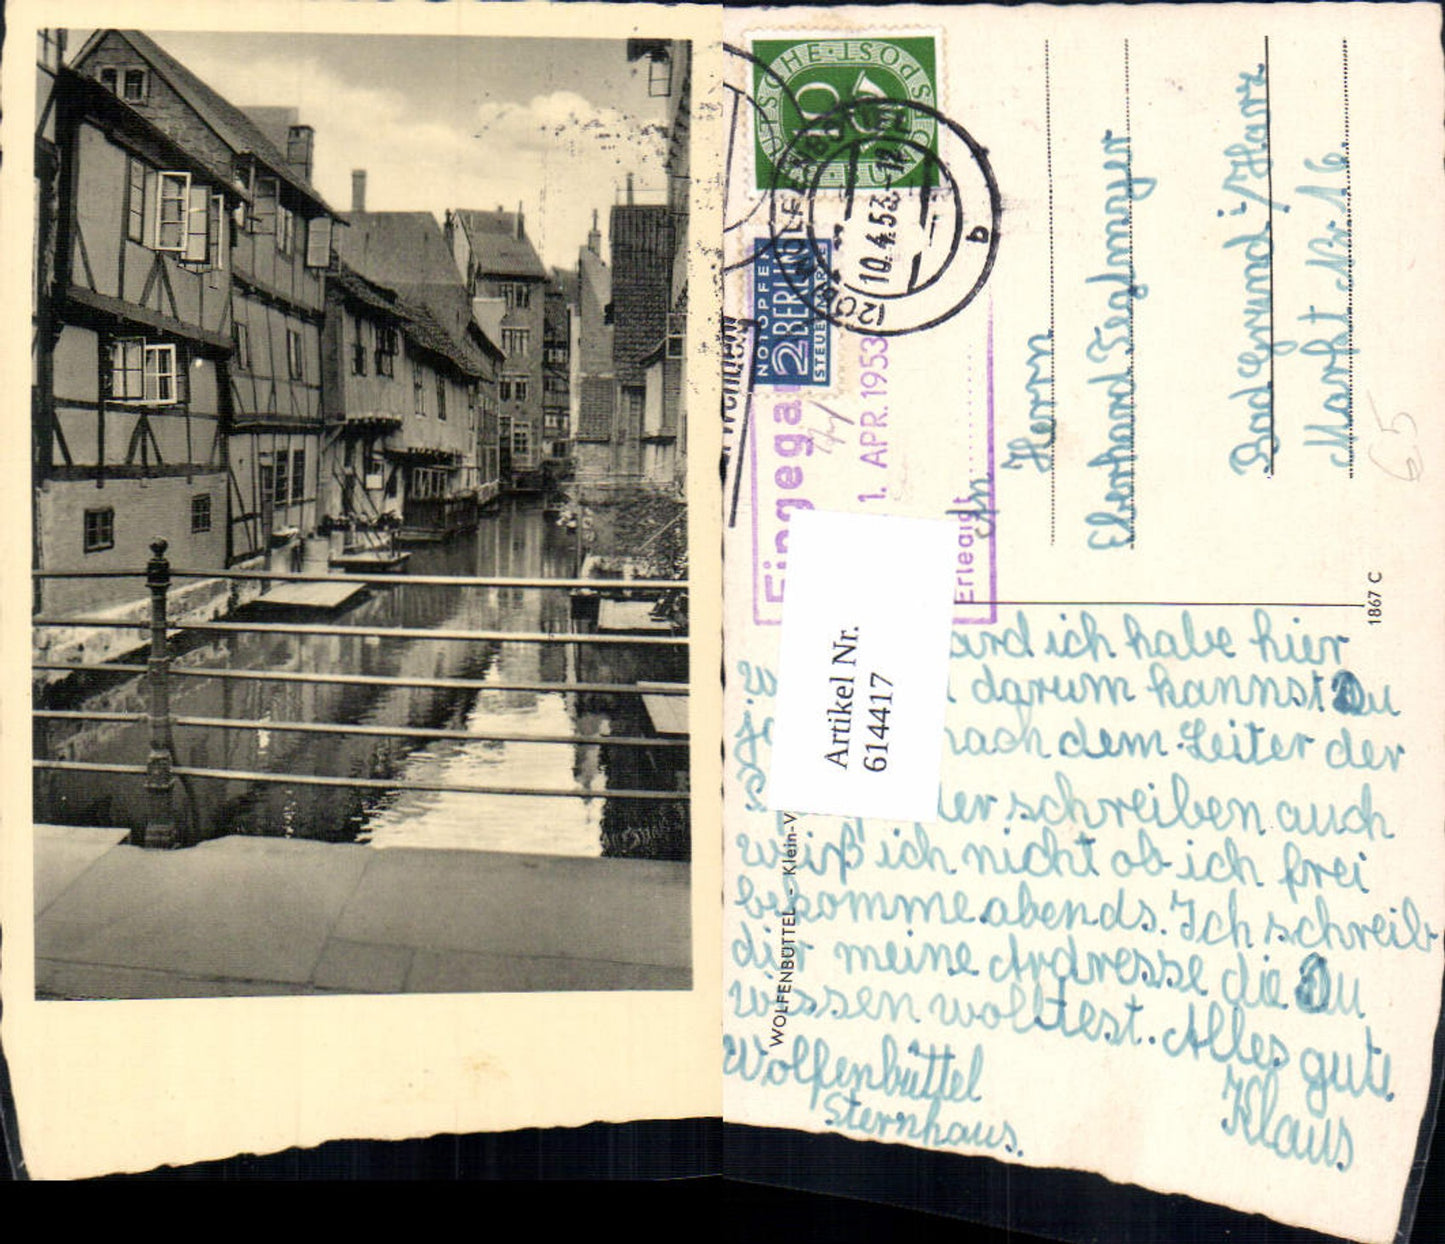 DEUTSCHE·POST
10
(20b) WOLFENBÜTTEL
10.4.53.-12
b
NOTOPFER
2 BERLIN
STEUERMARKE
Eingega
1. APR. 1953
Erledigt
An
Herrn
Eberhard Teglmayer
Bad Grund i/Harz
Markt Nr. 16.
65
1867 C
Artikel Nr.
614417
WOLFENBÜTTEL - Klein-V
ard ich habe hier
darum kannst Du
nach dem Leiter der
schreiben auch
weiß ich nicht ob ich frei
bekomme abends. Ich schreib
dir meine Ardresse die Du
wissen wolltest. Alles gute
Wolfenbüttel
Sternhaus.
Klaus